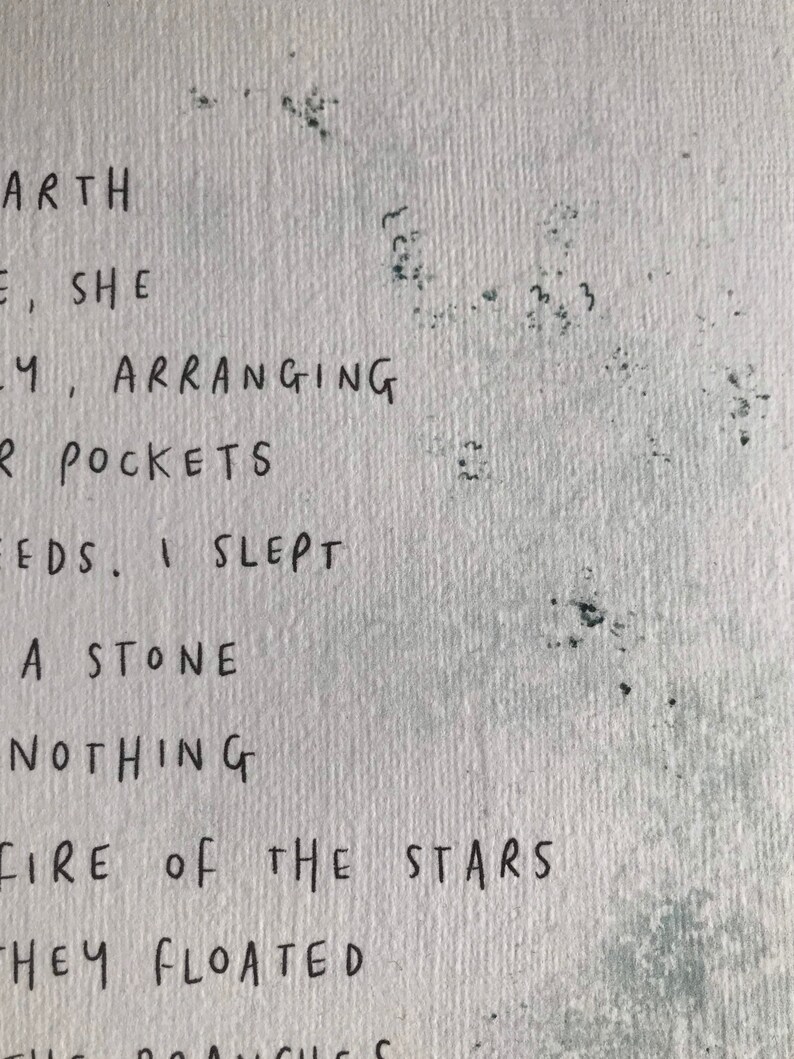 ARTH
E, SHE
LY, ARRANGING
R POCKETS
EEDS. I SLEPT
A STONE
NOTHING
FIRE OF THE STARS
THEY FLOATED
THE BRANCHES